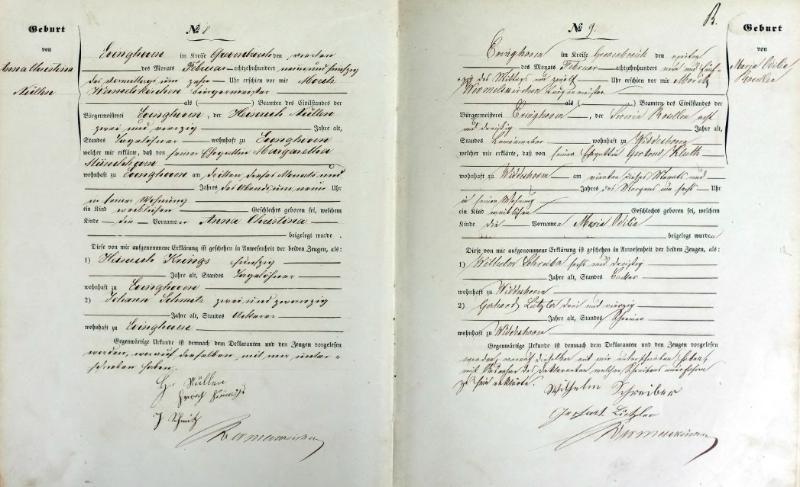 Geburt
von
Anna Christina
Nüllen
№ 8
Evinghoven im Kreise Grevenbroich den vierten
des Monats Februar achtzehnhundert neunundfünfzig
des Vormittags um zehn Uhr erschien vor mir
Bürgermeister
als ( ) Beamten des Civilstandes der
Bürgermeisterei Evinghoven, der Heinrich Nüllen
zwei und vierzig Jahre alt,
Standes Tagelöhner wohnhaft zu Evinghoven
welcher mir erklärte, daß von seiner Ehegattin Margaretha
wohnhaft zu Evinghoven am dritten dieses Monats und
Jahres des Abends um neun Uhr
in seiner Wohnung
ein Kind weiblichen Geschlechts geboren sei, welchem
Kinde die Vornamen Anna Christina
beigelegt wurden.
Diese von mir aufgenommene Erklärung ist geschehen in Anwesenheit der beiden Zeugen, als:
1) Heinrich Krings fünfzig
Jahre alt, Standes Tagelöhner
wohnhaft zu Evinghoven
2) Johann Schmitz zwei und zwanzig
Jahre alt, Standes Ackerer
wohnhaft zu Evinghoven
Gegenwärtige Urkunde ist demnach dem Deklaranten und den Zeugen vorgelesen
worden, wonach dieselben mit mir unter-
schrieben haben.
H Nüllen
J Schmitz
B.
№ 9
Evinghoven im Kreise Grevenbroich den
des Monats Februar achtzehnhundert neun und fünf-
zig des Mittags um zwölf Uhr erschien vor mir
Bürgermeister
als ( ) Beamten des Civilstandes der
Bürgermeisterei Evinghoven, der
und dreißig Jahre alt,
Standes wohnhaft zu
welcher mir erklärte, daß von seiner Ehegattin Gertrud
wohnhaft zu am vierten dieses Monats und
Jahres des Morgens um sechs Uhr
in seiner Wohnung
ein Kind weiblichen Geschlechts geboren sei, welchem
Kinde die Vornamen Maria
beigelegt wurden
Diese von mir aufgenommene Erklärung ist geschehen in Anwesenheit der beiden Zeugen, als:
1) Wilhelm Schreiber sechs und dreißig
Jahre alt, Standes
wohnhaft zu
2) Gerhard Lützler drei und vierzig
Jahre alt, Standes
wohnhaft zu
Gegenwärtige Urkunde ist demnach dem Deklaranten und den Zeugen vorgelesen
worden, wonach dieselben mit mir unterschrieben haben,
mit Ausnahme des Deklaranten welcher Schreibens unerfahren
zu sein erklärte.
Wilhelm Schreiber
Gerhard Lützler
Geburt
von
Maria